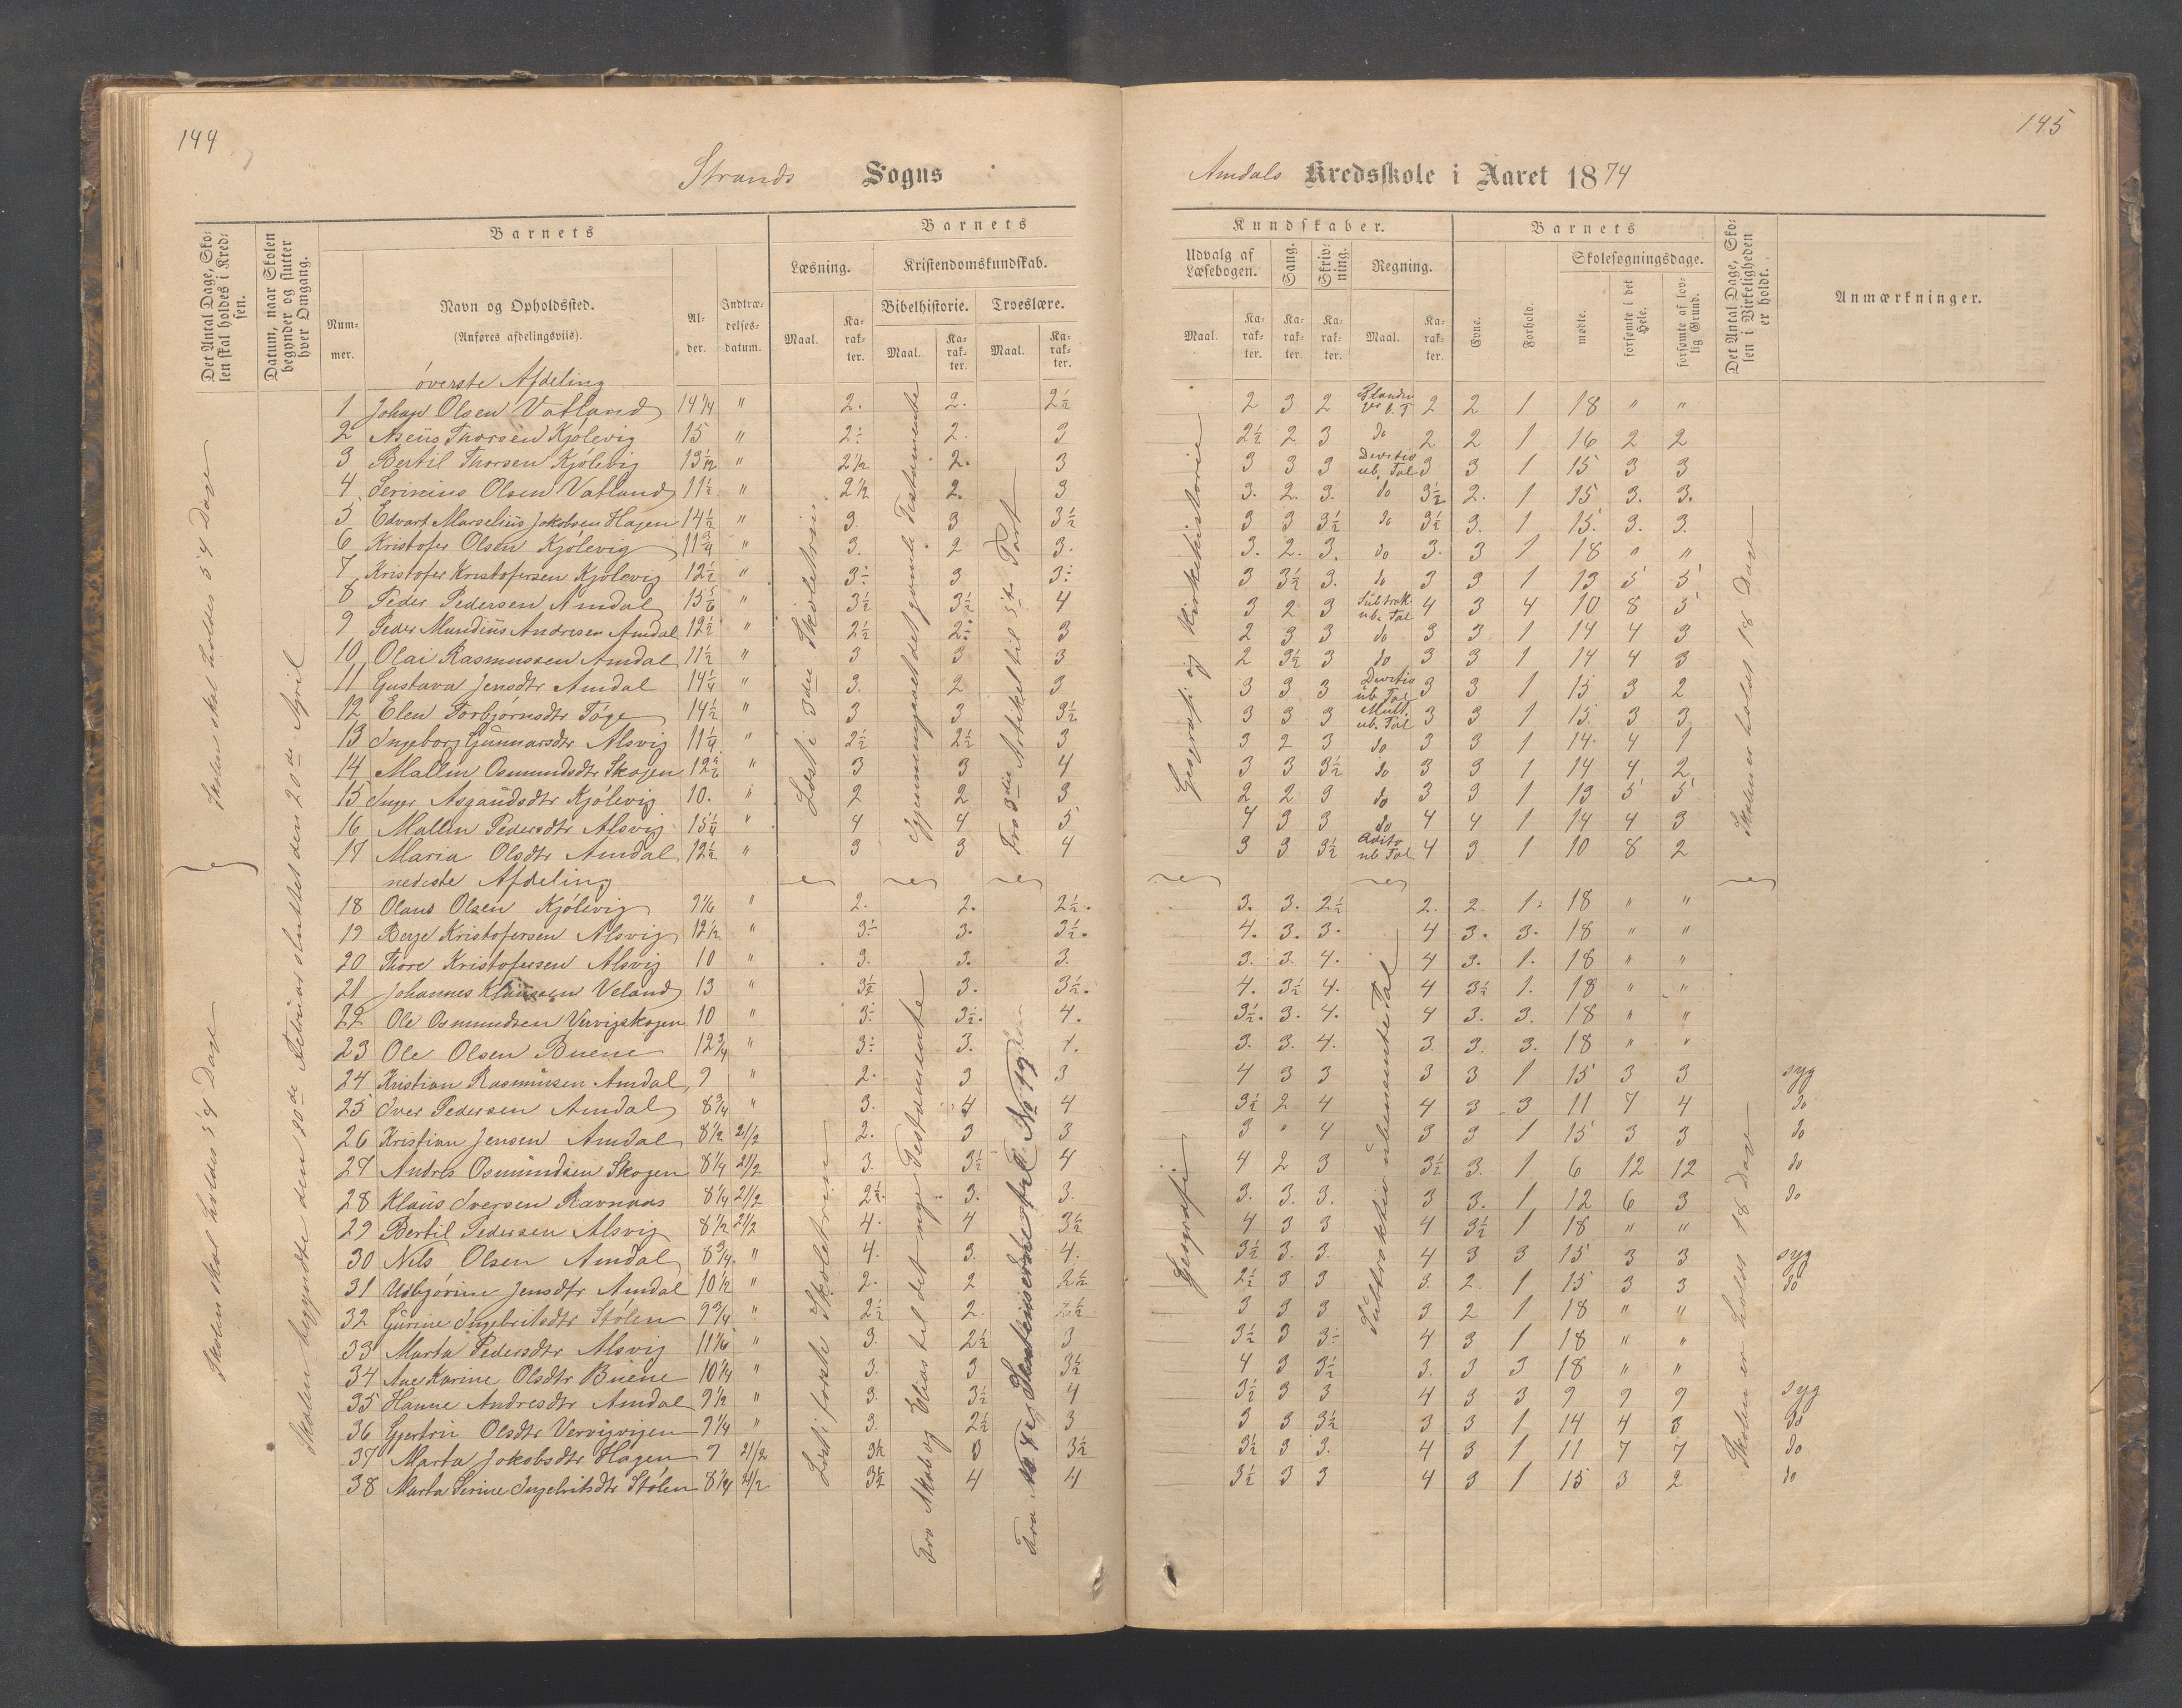 144
145
Strands Sogns
Amdals Kredsskole i Aaret 1874
Det Antal Dage, Skolen skal holdes i Kredsen.
Datum, naar Skolen begynder og slutter hver Omgang.
Barnets
Nummer.
Navn og Opholdssted.
(Anføres afdelingsviis).
Alder.
Indtrædelsesdatum.
Barnets
Læsning.
Kristendomskundskab.
Bibelhistorie.
Troeslære.
Maal.
Karakter.
Maal.
Karakter.
Maal.
Karakter.
Kundskaber.
Udvalg af Læsebogen.
Sang.
Skrivning.
Regning.
Maal.
Karakter.
Karakter.
Karakter.
Maal.
Karakter.
Barnets
Evne.
Forhold.
Skolesøgningsdage.
mødte.
forsømte i det Hele.
forsømte af lovlig Grund.
Det Antal Dage, Skolen i Virkeligheden er holdt.
Anmærkninger.
Skolen skal holdes 54 Dage
Skolen skal holdes 54 Dage
Skolen begyndte den 10de Februar sluttet den 20de April
Læst i 3die Skoletrin
Gjennemgaaet det gamle Testamente
Fra 3die Artikel til 5te Part
Geografi og Kirkehistorie
Skolen er holdt 18 Dage
øverste Afdeling
1 Johan Olsen Vatland 14 1/4 " 2. 2. 2½ 2 3 2 2 2 1 18 " "
2 Aseüs Thorsen Kjølevig 15 " 2½ 2. 3 2½ 2 3 do 2 2 1 16 2 2
3 Bertil Thorsen Kjølevig 13 1/12 " 2½ 2. 3 3 3 3 Divitio ub. Tal 3 3 1 15 3 3
4 Serinius Olsen Vatland 11½ " 2½ 2. 3 3. 2. 3. do 3½ 2. 1 15 3. 3.
5 Edvart Marselius Jakobsen Hagen 14½ " 3. 3 3½ 3 3 3½ do 3½ 3. 1 15. 3. 3.
6 Kristofer Olsen Kjølevig 11¾ " 3. 2 3. 3. 2. 3. do 3. 3 1 18 " "
7 Kristofer Kristofersen Kjølevig 12½ " 3÷ 3 3÷ 3 3½ 3. do 3 3 1 13 5 5
8 Peder Pedersen Amdal 15 5/6 " 3½ 3½ 4 3 2 3 Subtrak. ub. Tal 4 3 4 10 8 5
9 Peder Mundius Andresen Amdal 12½ " 2½ 2÷ 3 2 3 3 do 3 3 1 14 4 3
10 Olai Rasmussen Amdal 11½ " 3 3 3 2 3½ 3 do 3 3 1 14 4 3
11 Gustava Jensdtr Amdal 14¼ " 3. 2 3 3 3 3 Divitio ub Tal 3 3 1 15 3 2
12 Elen Torbjørnsdtr Tøge 14½ " 3 3 3½ 3 3 3 Mult. ub. Tal 3 3 1 15 3 3
13 Ingeborg Gunnarsdtr Alsvig 11¼ " 2½ 2½ 3 3 2 3 do 3 3 1 14. 4 1
14 Mallin Osmundsdtr Skogen " 3 3 4 3 3 3½ do 3 3 1 14 4 2
15 Inger Asgaudsdtr Kjølevig 10. " 2 2 3 2 2 3 do 3 3 1 13 5 5
16 Mallin Pedersdtr Alsvig 15¼ " 4 4 5 4 3 3 do 4 4 1 14 4 3
17 Maria Olsdtr Amdal 12½ " 3 3 4 3 3 3½ Adito ub Tal 4 3 1 10 8 2
nedeste Afdeling
Læst i forste Skoletrin
Fra Akab og Elias til det nye Testamente
Geografi
Subtraktion ubenevnte Tal
Skolen er holdt 18 Dage
18 Olaus Olsen Kjølevig 9 1/6 " 2. 2. 2½. 3. 3. 2½ 2. 2. 1. 18 " "
19 Berge Kristofersen Alsvig 12½ " 3÷ 3. 3½. 4. 3. 3. 4 3. 3. 18 " "
20 Thore Kristofersen Alsvig 10 " 3. 3. 3. 3. 3. 4. 4 3. 1. 18 " "
21 Johannes Klaussen Veland 13 " 3½ 3. 3½. 4. 3½ 4. 4 3½ 1. 18 " "
22 Ole Osmundsen Vervigskogen 10 " 3÷ 3½. 4. 3½. 3. 4. 4 3. 3. 18 " "
23 Ole Olsen Buene 12¾ " 3÷ 3. 4. 3. 3. 4. 3. 3. 3. 18 " "
24 Kristian Rasmussen Amdal 9 " 2. 3 3 4 3 3 3 3 1 15 3 3 syg
25 Iver Pedersen Amdal 8¾ " 3. 4 4 3½ 2 4 4 3 3 11 7 4 do
26 Kristian Jensen Amdal 8½ 21/2 2. 3 3 3 " 4 3 3 1 15 3 3 do
27 Andres Osmundsen Skogen 8¼ 21/2 3. 3½ 4 4 2 3 3½ 3. 1 6 12 12 do
28 Klaus Iversen Ravnaas 8¼ 21/2 2½. 3. 3. 3. 3. 3. 3 3. 1 12 6 3 do
29 Bertil Pedersen Alsvig 8½ 21/2 4. 4 3½ 4 3 3 4 3½ 1 18 " "
30 Nils Olsen Amdal 8¾. " 4. 3. 4. 3½ 3. 3. 4 3 3 15 3 3 syg
31 Udbjørine Jensdtr Amdal 10½ " 2. 2 2½ 2½ 3 3 3. 2. 1 15 3 3 do
32 Gurine Ingebritsdtr Stølen 9¾ " 2½ 2. 3 3 3 3 2 1 18 " "
33 Marta Pedersdtr Alsvig 11 1/6 " 3. 2½ 3 3½ 3 3÷ 4 3 1 18 " "
34 Ane Karine Olsdtr Buene 10¼ " 3. 3 3½ 4 3 3½ 3. 3 3 18 " "
35 Hanne Andresdtr Amdal 9½ " 3. 3½ 4 3½ 3 3 4 3 3 9 9 9 syg
36 Gjertrü Olsdtr Vervigvigen 9¼ " 3. 2½ 3 3 3 3½ 3 3 1 14 4 3 do
37 Marta Jokobsdtr Hagen 9 21/2 3½ 3 3½ 3½ 3 3. 4 3 1 11 7 7 do
38 Marta Serine Ingebritsdtr Stølen 8¼ 21/2 3½ 4 4 3½ 3 3 4 3 1 15 3 2 do